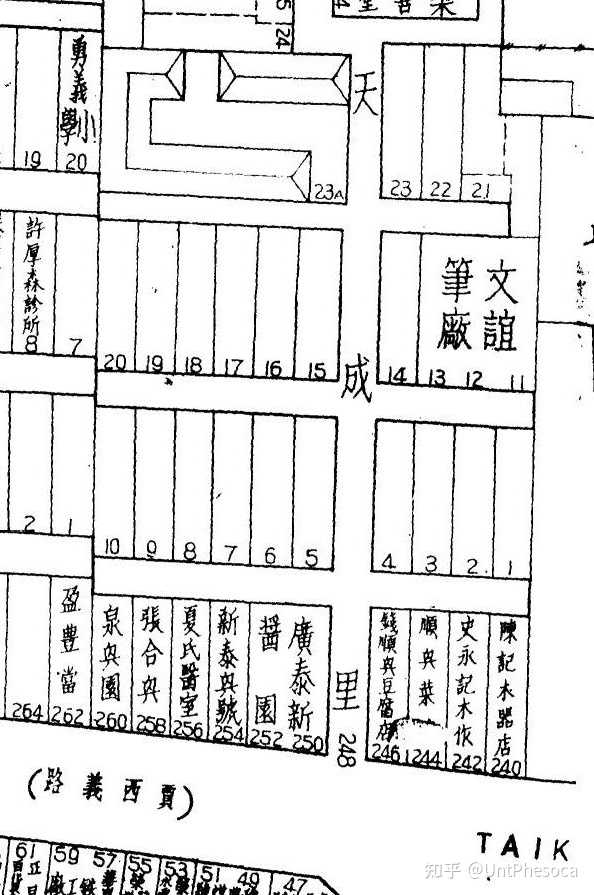 24
勇義小學
19
20
天
23A
23
22
21
許厚森診所
8
7
20
19
18
17
16
15
成
14
13
文誼筆廠
12
11
2
1
10
9
8
7
6
5
4
3
2
1
264
盈豐當
262
泉興園
260
張合興
258
夏氏醫室
256
新泰興號
254
醬園
252
廣泰新
250
里
248
錢順興豆腐店
246
順興菜
244
史永記木作
242
陳記木器店
240
(路義西賈)
TAIK
61
59
57
55
53
51
49
47
知乎 @UntPhesoca